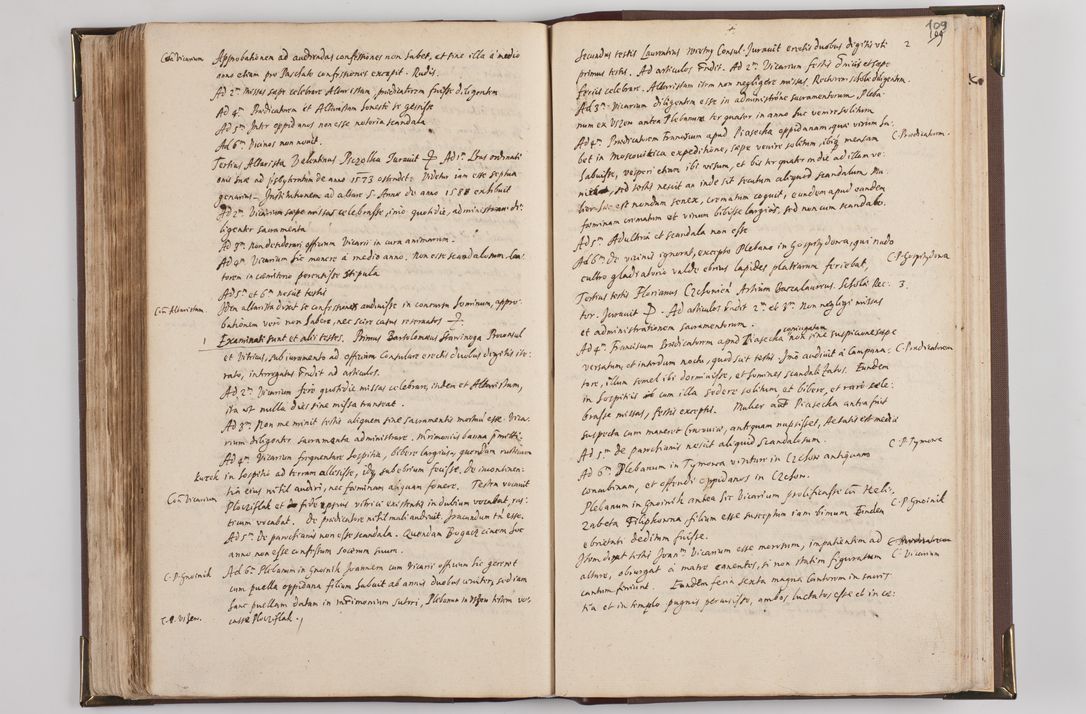 Con: Vicarium Approbationem ad audiendas confessiones non habet, et sine illa à medio
anno etiam pro Paschate confessiones excepit. Rudis.
Ad 2m missas sæpe celebrare Altaristam, prædicatorem fuisse diligentem
Ad 4m Prædicatorem et Altaristam honesti se gesisse
Ad 5m Inter oppidanos non esse notoria scandala
Ad 6m Vicinos non novit.
Tertius Altarista Valentinus Juravit Ad 1m Lræs ordinati
onis suæ ad præsbyteratum de anno 1573 ostendit: Videtur iam esse septua
genarius. Institutionem ad altare S. Annæ de anno 1588 exhibuit
Ad 2m Vicarium sæpe missas celebrasse, imò quotidie, administrare di-
ligenter sacramenta
Ad 3m Non detenderari officium Vicarii in cura animarum.
Ad 4m Vicarium hic manere à medio anno. Non esse scandalosum. Can-
torem in cæmiterio percussisse stipula
Ad 5m et 6m nescit testis
Con: Altaristam. Idem altarista dixit se confessiones audivisse in concursu hominum, appro-
bationem verò non habere, nec scire casus reservatos
1 Examinati sunt et alii testes. Primus Bartolomæus Starzinoga Proconsul
et Vitricus, sub iuramento ad officium Consulare erectis duobus digitis ite-
rato, interrogatus rñdit ad articulos.
Ad 2m Vicarium ferè quotidie missas celebrare, itidem et Altaristam,
ita ut nulla dies sine missa transeat.
Ad 3m Non meminit testis aliquem sine sacramentis mortuum esse. Vica-
rium diligenter sacramenta administrare. Mrimoniis banna præmitti.
Ad 4m Vicarium frequentare hospitia, bibere largius, quendam rusticum
in hospitio ad terram allesisse, idq subebrium fecisse. De incontinen-
tia eius nihil audivi, nec fæminam aliquam fovere. Testem vocavit
Con: Vicarium
trium vocabat. De prædicatore nihil mali audivit. Iracundum tñ esse.
Ad 5m De parochianis non esse scandala. Quendam Bugaicz cinem hoc
anno non esse confessum socerum suum.
C. P. Gnoinik Ad 6m Plebanum in Gnoinik Joannem cum Vicarii officium hic gereret
cum puella oppidana filium habuit ab annis duobus vixiter, sed iam
hanc puellam datam in mrimonium sutori, Plebanum in Uszew testem vo-
C. P. Uszew.

109
Secundus testis Laurentius Consul. Juravit erectis duobus digitis uti 2
primus testis. Ad articulos rñdit. Ad 2m Vicarium festis Dnicis et sæpe
feriis celebrare. Altaristam item non negligere missas. Rectorem scholæ diligentem.
Ad 3m Vicarium diligentem esse in administrõne sacramentorum. Pleba-
num ex Uszew antea Plebanum ter quater in anno huc venire solitum
Ad 4m Prædicatorem Franciscum apud Piasecka oppidanam, quæ virum ha- C. Prædicatorem.
bet in Moscovitica expeditione, sæpe venire solitum, ibiq mensam
habuisse, vesperi etiam ibi visum, et bis ter quater in die ad illam ve-
sed testis nescit an inde sit secutum aliquod scandalum. Mu-
lier hæc est nondum senex, crematum coquit, eundem apud eandem
fæminam crematum et vinum bibisse largius, sed non cum scandalo.
Ad 5m Adulteria et scandala non esse
Ad 6m De vicinis ignorat, excepto Plebano in Gosprzydowa, qui nudo C. P. Gosprzydowa
cultro gladiatorio valde ebrius lapides platearum feriebat,
Tertius testis Florianus Czchovien Artium Baccalaureus. Scholæ Rec- 3.
tor. Juravit Ad articulos rñdit 2m et 3m Non negligi missas
et administrationem sacramentorum.
Ad 4m Franciscum Prædicatorem apud Piasecka coniugatam non sine suspicione sæpe
versatum, et interdum noctu, quod scit testis. Imò audivit à Campana- C. Prædicatorem
tore, illum semel ibi dormivisse, et homines scandalizatos. Eundem
in hospitiis cum illa sedere solitum et bibere, et rarò cele-
brasse missas, festis exceptis. Mulier aũt Piasecka antea fuit
suspecta cum maneret Cracoviæ, antequam nupsisset, Ætatis est mediæ
Ad 5m De parochianis nescit aliquid scandalosum.
Ad 6m Plebanum in Tymowa venire in Czchow antiquum C. P. Tymowa
concubinam, et offendi oppidanos in Czchow.
Plebanum in Gnoinik antea hic Vicarium prolificasse cũ Heli- C. P. Gnoinik
zabeta Filiphowna filium esse susceptum iam bimum. Eundem
ebrietati deditum fuisse.
Item dixit testis Joannem Vicarium esse morosum, impatientem ad C. Vicarium
altare, obiurgat à matre canentes, si non statim figuratum
cantum finiunt. Eundem feria sexta magna Cantorem in sacris-
tia et in templo pugnis percussisse, ambos luctatos esse et in cæ-